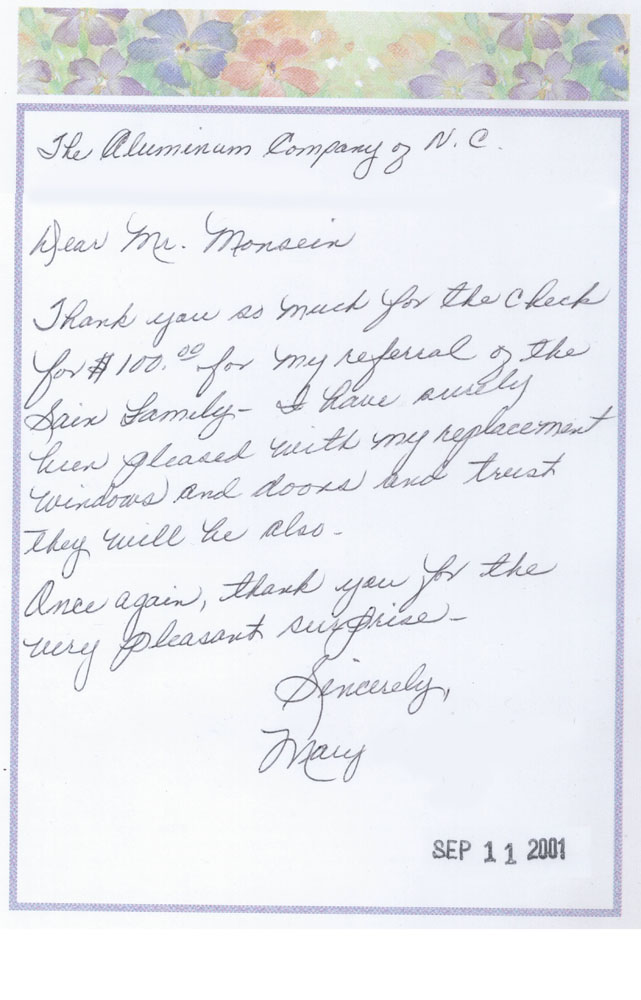 The Aluminum Company of N.C.
Dear Mr. Monsein
Thank you so much for the check
for $100.00 for my referral of the
Sain Family - I have surely
been pleased with my replacement
windows and doors and trust
they will be also -
Once again, thank you for the
very pleasant surprise -
Sincerely,
Mary
SEP 11 2001